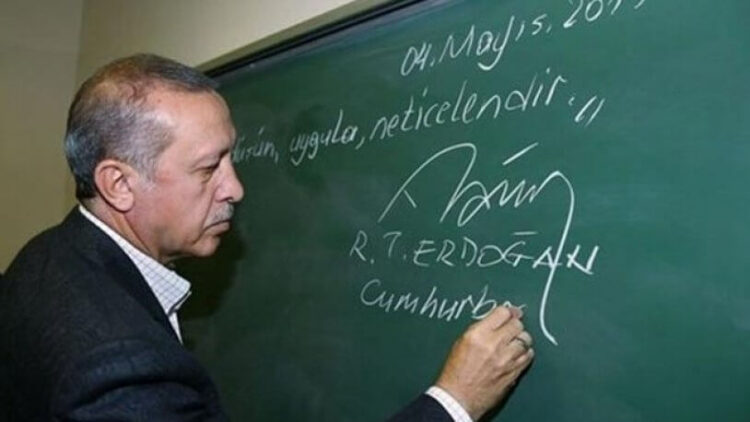 04. Mayıs. 201
uygula, neticelendir.,,
R. T. ERDOĞAN
Cumhurba